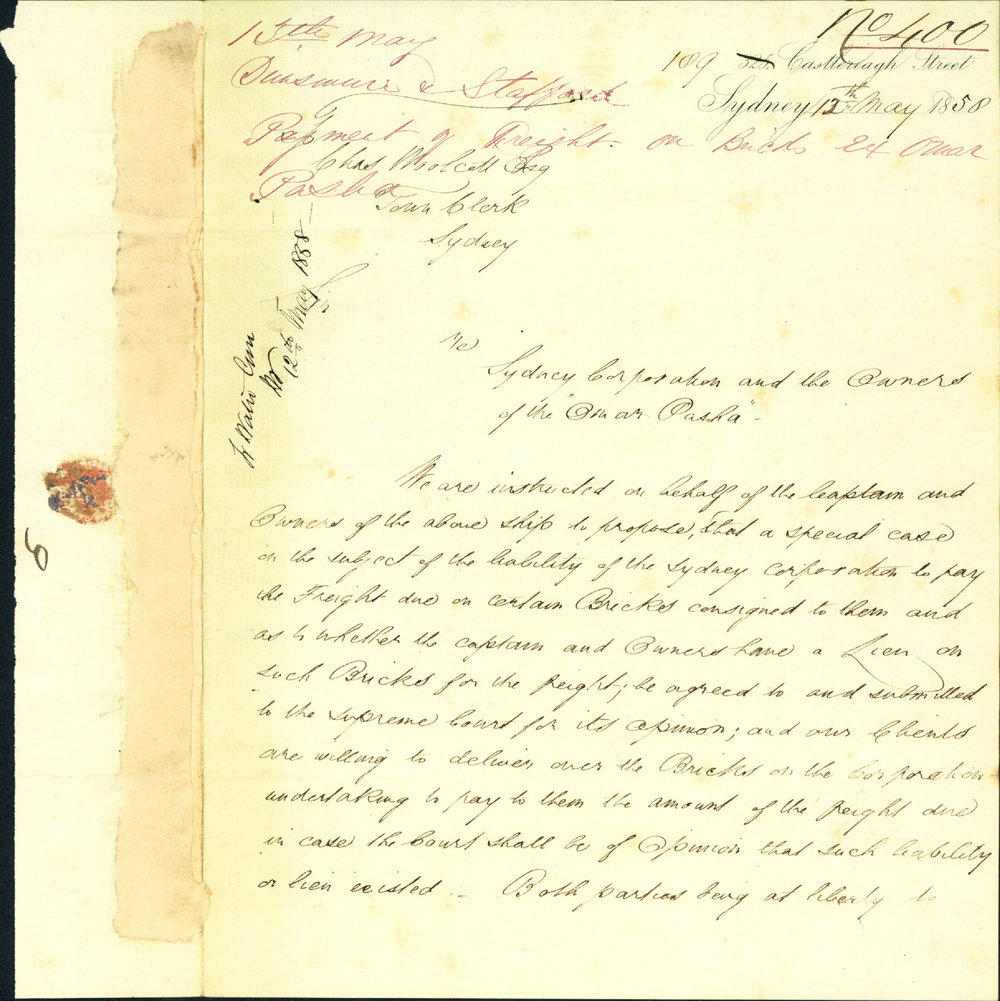 No 400
13th May
109 325 Castlereagh Street
Dunsmure & Stafford
Sydney 12th May 1858
Payment of Freight on Bricks ex Omar
Pasha
Chas Woolcott Esq
Town Clerk
Sydney
Sir
12th May 1858
Re
Sydney Corporation and the Owners
of the "Omar Pasha" -
We are instructed on behalf of the Captain and
Owners of the above ship to propose, that a special case
on the subject of the liability of the Sydney Corporation to pay
the Freight due on certain Bricks consigned to them and
as to whether the captain and Owners have a Lien on
such Bricks for the freight; be agreed to and submitted
to the Supreme Court for its opinion; and our Clients
are willing to deliver over the Bricks on the Corporation
undertaking to pay to them the amount of the freight due
in case the Court shall be of Opinion that such liability
or lien existed - Both parties being at liberty to